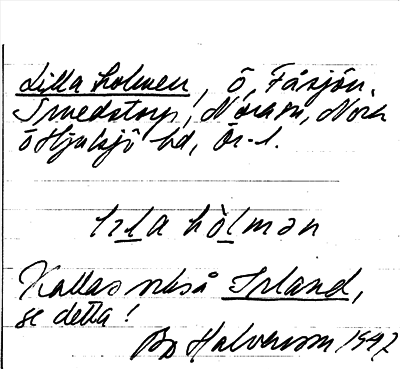 Lilla holmen, ö, Fåsjön,
Smedstorp, Nora sn, Nora
o Hjulsjö bd, Ör. l.
lıla hòlmən
Kallas också Irland,
se detta!
Bo Halvarsson 1947